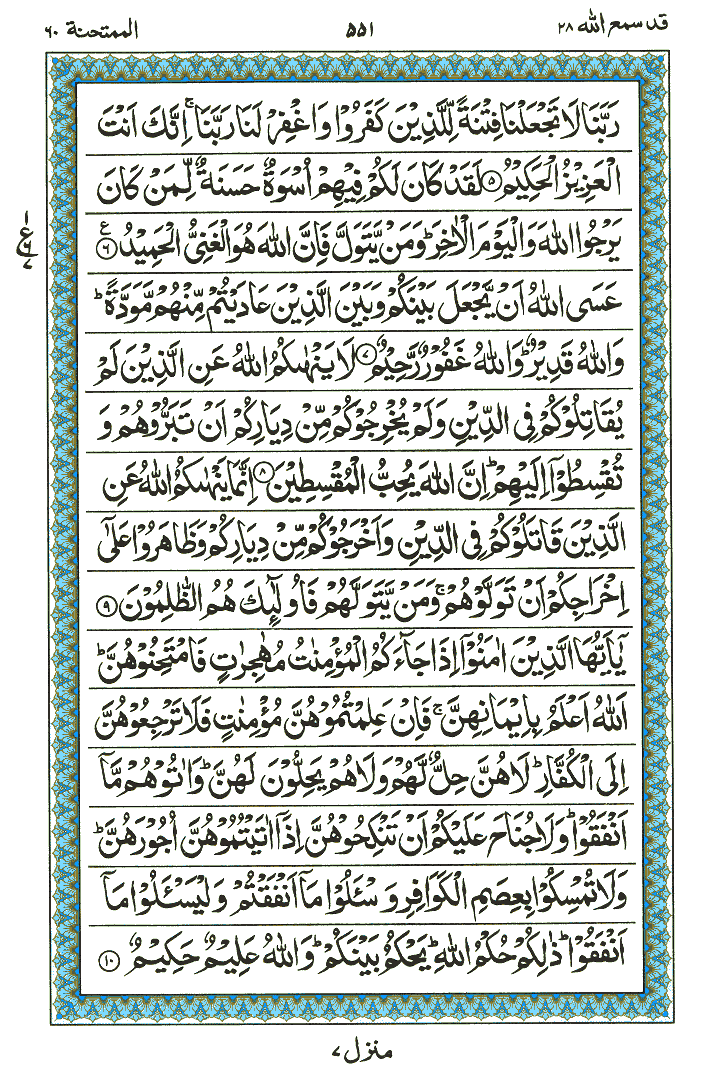 قد سمع الله ۲۸ ۵۵۱ الممتحنة ۶۰
رَبَّنَا لَا تَجْعَلْنَا فِتْنَةً لِّلَّذِيْنَ كَفَرُوْا وَاغْفِرْ لَنَا رَبَّنَا ۚ اِنَّكَ اَنْتَ
الْعَزِيْزُ الْحَكِيْمُ ۝۵ لَقَدْ كَانَ لَكُمْ فِيْهِمْ اُسْوَةٌ حَسَنَةٌ لِّمَنْ كَانَ
يَرْجُوا اللّٰهَ وَالْيَوْمَ الْاٰخِرَ ؕ وَمَنْ يَّتَوَلَّ فَاِنَّ اللّٰهَ هُوَ الْغَنِىُّ الْحَمِيْدُ ۝۶ ع
۱ ع ۶ ۷
عَسَى اللّٰهُ اَنْ يَّجْعَلَ بَيْنَكُمْ وَبَيْنَ الَّذِيْنَ عَادَيْتُمْ مِّنْهُمْ مَّوَدَّةً ؕ
وَاللّٰهُ قَدِيْرٌ ؕ وَاللّٰهُ غَفُوْرٌ رَّحِيْمٌ ۝۷ لَا يَنْهٰىكُمُ اللّٰهُ عَنِ الَّذِيْنَ لَمْ
يُقَاتِلُوْكُمْ فِى الدِّيْنِ وَلَمْ يُخْرِجُوْكُمْ مِّنْ دِيَارِكُمْ اَنْ تَبَرُّوْهُمْ وَ
تُقْسِطُوْۤا اِلَيْهِمْ ؕ اِنَّ اللّٰهَ يُحِبُّ الْمُقْسِطِيْنَ ۝۸ اِنَّمَا يَنْهٰىكُمُ اللّٰهُ عَنِ
الَّذِيْنَ قَاتَلُوْكُمْ فِى الدِّيْنِ وَاَخْرَجُوْكُمْ مِّنْ دِيَارِكُمْ وَظَاهَرُوْا عَلٰٓى
اِخْرَاجِكُمْ اَنْ تَوَلَّوْهُمْ ۚ وَمَنْ يَّتَوَلَّهُمْ فَاُولٰٓئِكَ هُمُ الظّٰلِمُوْنَ ۝۹
يٰۤاَيُّهَا الَّذِيْنَ اٰمَنُوْۤا اِذَا جَآءَكُمُ الْمُؤْمِنٰتُ مُهٰجِرٰتٍ فَامْتَحِنُوْهُنَّ ؕ
اَللّٰهُ اَعْلَمُ بِاِيْمَانِهِنَّ ۚ فَاِنْ عَلِمْتُمُوْهُنَّ مُؤْمِنٰتٍ فَلَا تَرْجِعُوْهُنَّ
اِلَى الْكُفَّارِ ؕ لَا هُنَّ حِلٌّ لَّهُمْ وَلَا هُمْ يَحِلُّوْنَ لَهُنَّ ؕ وَاٰتُوْهُمْ مَّاۤ
اَنْفَقُوْا ؕ وَلَا جُنَاحَ عَلَيْكُمْ اَنْ تَنْكِحُوْهُنَّ اِذَاۤ اٰتَيْتُمُوْهُنَّ اُجُوْرَهُنَّ ؕ
وَلَا تُمْسِكُوْا بِعِصَمِ الْكَوَافِرِ وَسْئَلُوْا مَاۤ اَنْفَقْتُمْ وَلْيَسْئَلُوْا مَاۤ
اَنْفَقُوْا ؕ ذٰلِكُمْ حُكْمُ اللّٰهِ ؕ يَحْكُمُ بَيْنَكُمْ ؕ وَاللّٰهُ عَلِيْمٌ حَكِيْمٌ ۝۱۰
منزل ۷